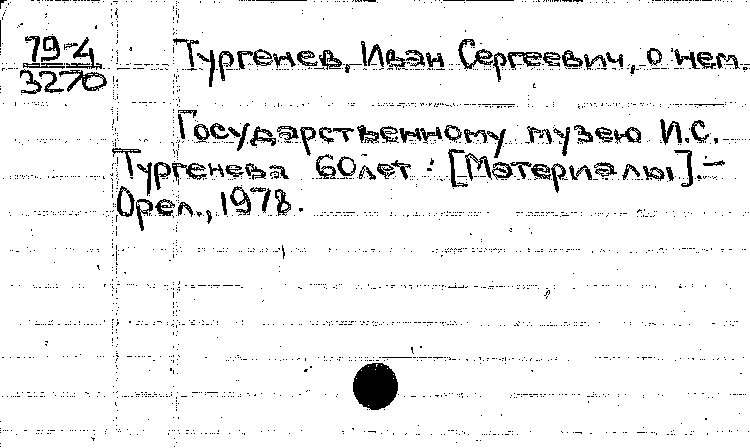 79-4
3270
Тургенев, Иван Сергеевич, о нем.
Государственному музею И.С.
Тургенева 60 лет : [Материалы].—
Орел., 1978.